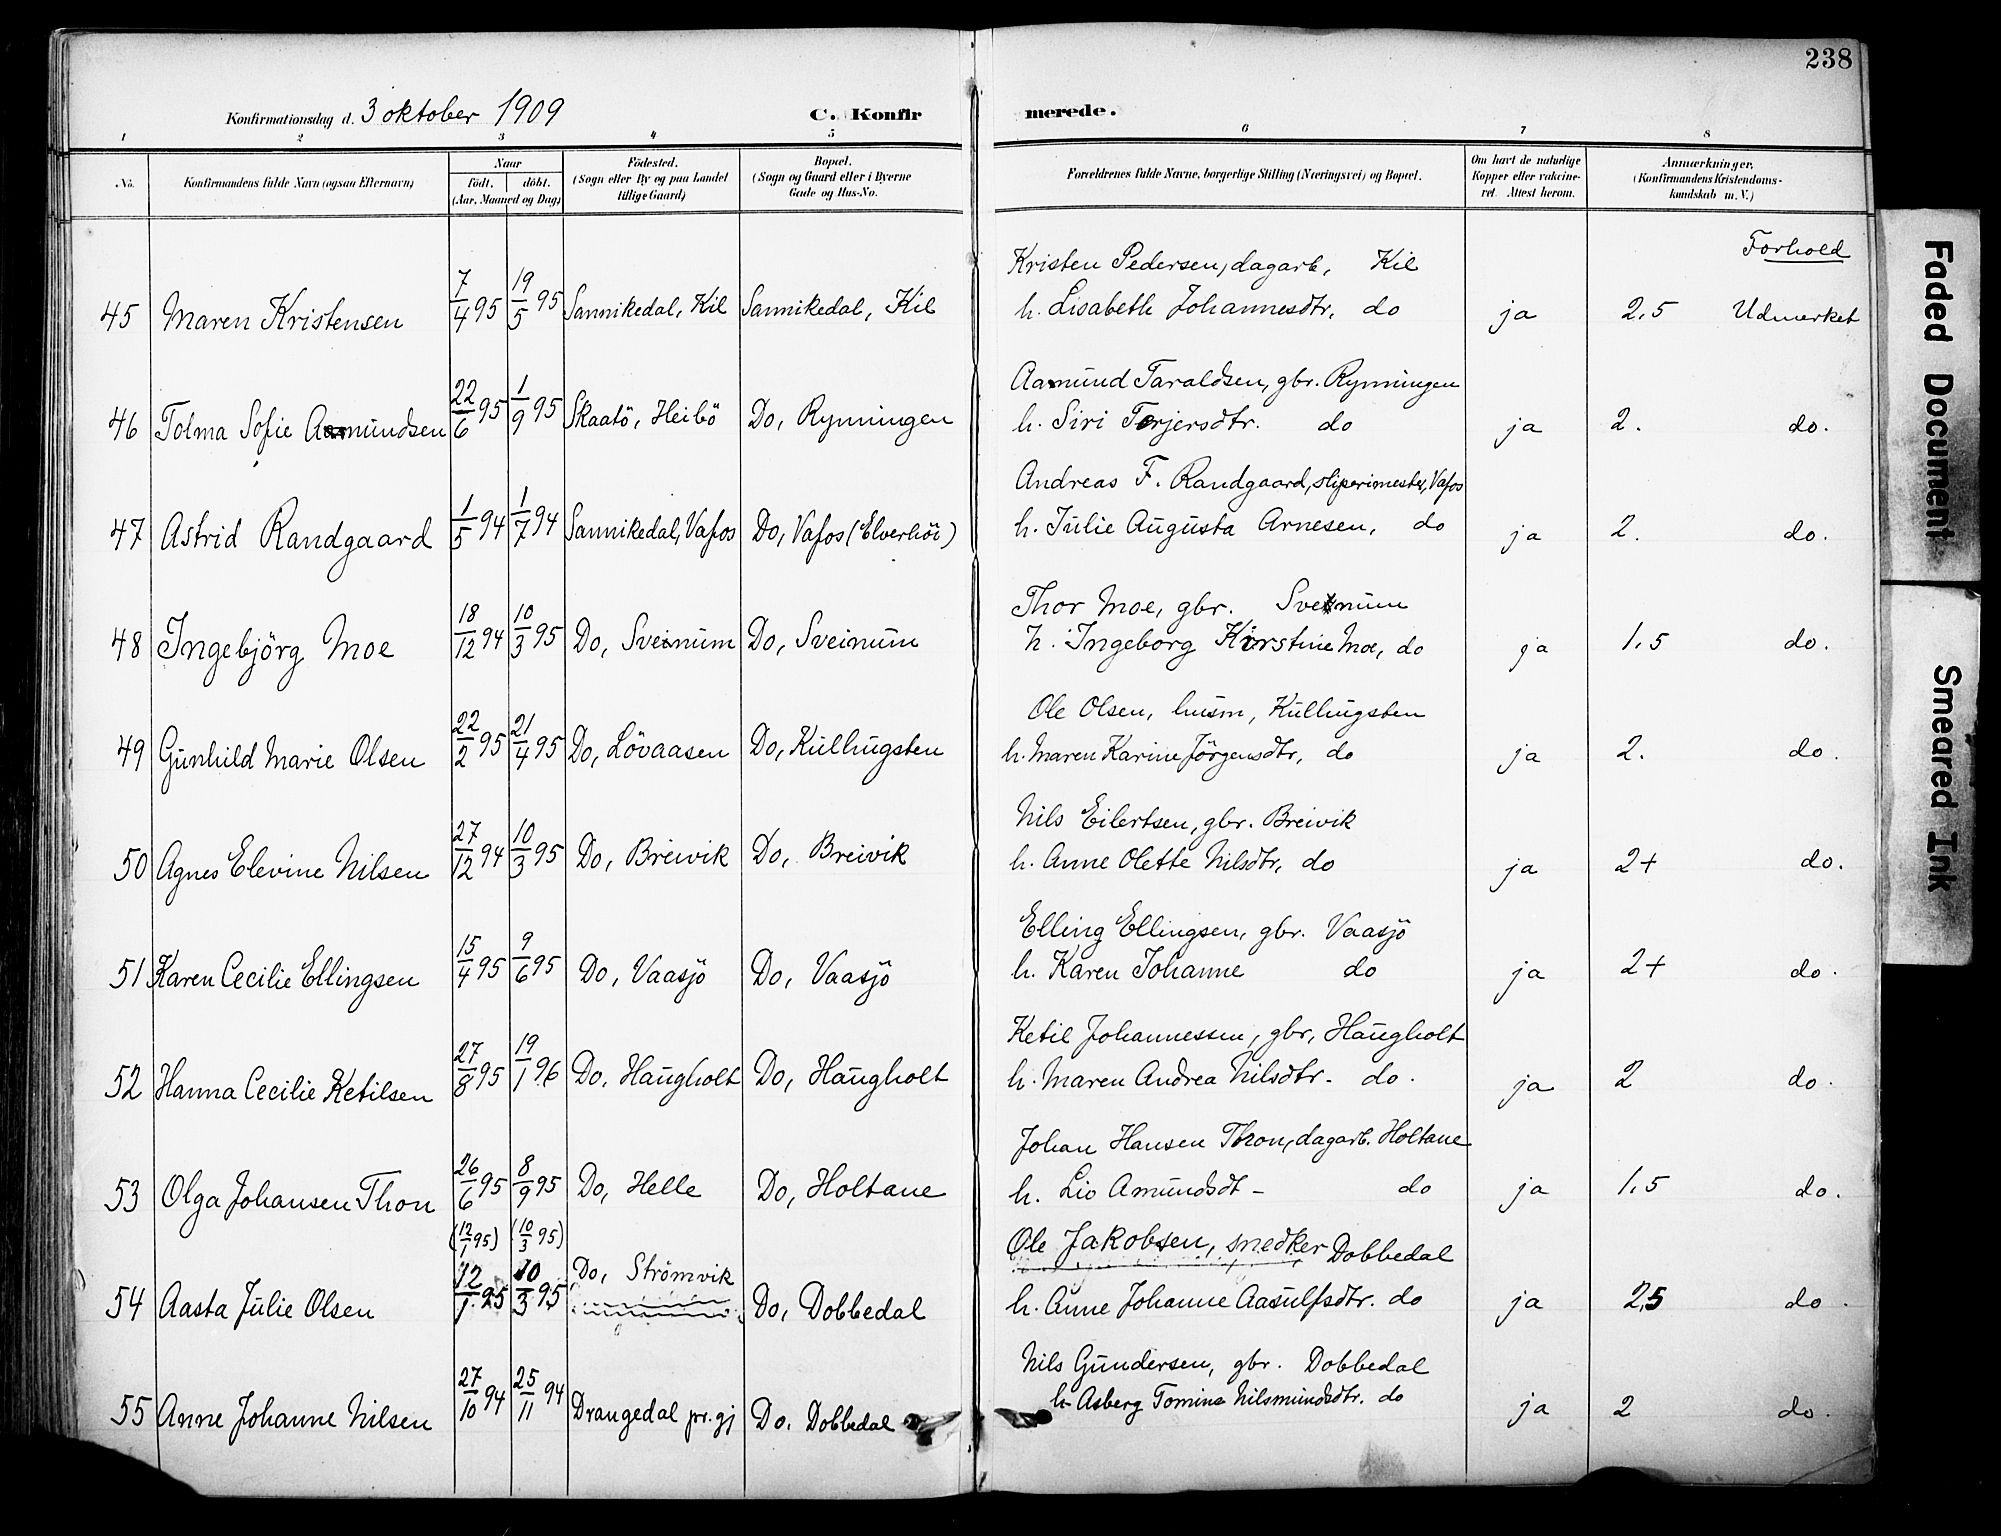 238
Konfirmationsdag d. 3 oktober 1909 C. Konfirmerede.
1 2 3 4 5 6 7 8
No. Konfirmandens fulde Navn (ogsaa Efternavn) Naar födt. döbt. (Aar, Maaned og Dag) Födested. (Sogn eller By og paa Landet tillige Gaard) Bopæl. (Sogn og Gaard eller i Byerne Gade og Hus-No. Forældrenes fulde Navne, borgerlige Stilling (Næringsvei) og Bopæl. Om havt de naturlige Kopper eller vaccineret. Attest herom. Anmærkninger. (Konfirmandens Kristendomskundskab m. V.)
Forhold
Kristen Pedersen, dagarb, Kil
45 Maren Kristensen 7/4 95 19/5 95 Sannikedal, Kil Sannikedal, Kil h. Lisabeth Johannesdtr, do ja 2,5 Udmerket
Aamund Taraldsen, gbr. Rynningen
46 Tolma Sofie Aamundsen 22/6 95 1/9 95 Skaatö, Heibö Do, Rynningen h. Siri Terjersdtr. do ja 2. do.
Andreas F. Randgaard, sliperimester, Vafos
47 Astrid Randgaard 1/5 94 1/7 94 Sannikedal, Vafos Do, Vafos (Elverhöi) h. Julie Augusta Arnesen, do ja 2. do.
Thor Moe, gbr. Sveinum
48 Ingebjörg Moe 18/12 94 10/3 95 Do, Sveinum Do, Sveinum h. Ingeborg Kirstine Moe, do ja 1,5 do.
Ole Olsen, husm, Kullugsten
49 Gunhild Marie Olsen 22/2 95 21/4 95 Do, Lövaasen Do, Kullugsten h. Maren Karine Jörgensdtr, do ja 2. do.
Nils Eilertsen, gbr. Breivik
50 Agnes Elevine Nilsen 27/12 94 10/3 95 Do, Breivik Do, Breivik h. Anne Olette Nilsdtr, do ja 2+ do.
Elling Ellingsen, gbr. Vaasjö
51 Karen Cecilie Ellingsen 15/4 95 9/6 95 Do, Vaasjö Do, Vaasjö h. Karen Johanne do ja 2+ do.
Ketil Johannessen, gbr, Haugholt
52 Hanna Cecilie Ketilsen 27/8 95 19/1 96 Do, Haugholt Do, Haugholt h. Maren Andrea Nilsdtr. do. ja 2 do.
Johan Hansen Thon, dagarb. Holtane
53 Olga Johansen Thon 26/6 95 8/9 95 Do, Helle Do, Holtane h. Liv Amundsdt- do ja 1,5 do.
(12/1 95) (10/3 95) Ole Jakobsen, snedker Dobbedal
54 Aasta Julie Olsen 12/1 95 10/3 95 Do, Strömvik Do, Dobbedal h. Anne Johanne Aasulfsdtr. do ja 2,5 do.
Nils Gundersen, gbr. Dobbedal
55 Anne Johanne Nilsen 27/10 94 25/11 94 Drangedal pr.gj Do. Dobbedal h. Asberg Tomine Nilsmundsdtr. do ja 2 do.
Faded Document
Smeared Ink